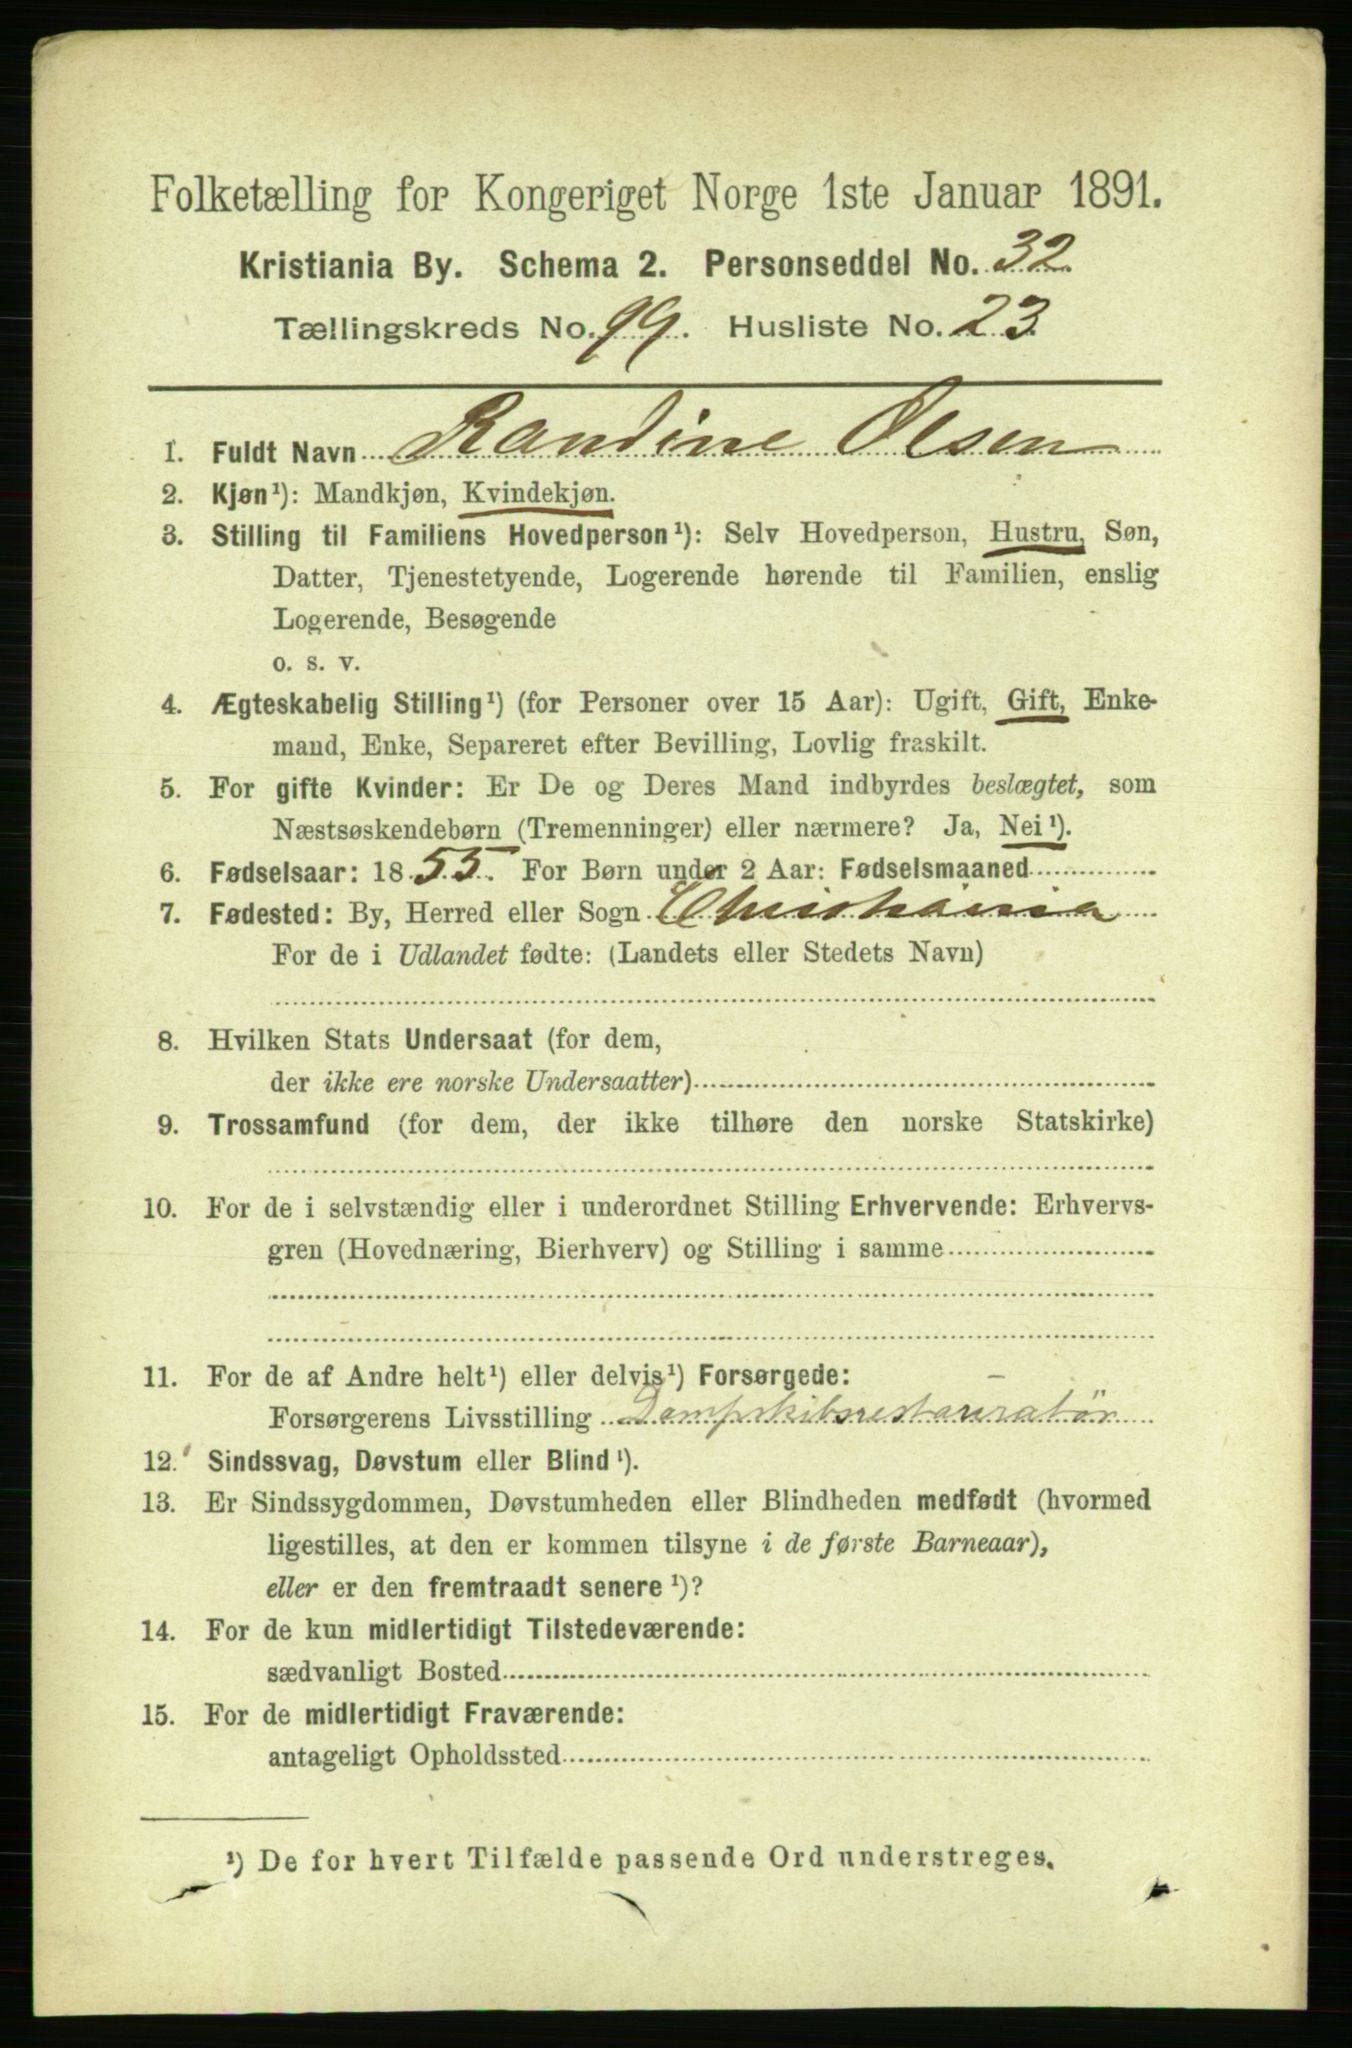 Folketælling for Kongeriget Norge 1ste Januar 1891.
Kristiania By. Schema 2. Personseddel No. 32.
Tællingskreds No. 99. Husliste No. 23.
1. Fuldt Navn Randine Olsen
2. Kjøn¹): Mandkjøn, Kvindekjøn.
3. Stilling til Familiens Hovedperson¹): Selv Hovedperson, Hustru, Søn,
Datter, Tjenestetyende, Logerende hørende til Familien, enslig
Logerende, Besøgende
o. s. v.
4. Ægteskabelig Stilling¹) (for Personer over 15 Aar): Ugift, Gift, Enke-
mand, Enke, Separeret efter Bevilling, Lovlig fraskilt.
5. For gifte Kvinder: Er De og Deres Mand indbyrdes beslægtet, som
Næstsøskendebørn (Tremenninger) eller nærmere? Ja, Nei¹).
6. Fødselsaar: 1855. For Børn under 2 Aar: Fødselsmaaned
7. Fødested: By, Herred eller Sogn Christiania
For de i Udlandet fødte: (Landets eller Stedets Navn)
8. Hvilken Stats Undersaat (for dem,
der ikke ere norske Undersaatter)
9. Trossamfund (for dem, der ikke tilhøre den norske Statskirke)
10. For de i selvstændig eller i underordnet Stilling Erhvervende: Erhvervs-
gren (Hovednæring, Bierhverv) og Stilling i samme
11. For de af Andre helt¹) eller delvis¹) Forsørgede:
Forsørgerens Livsstilling Dampskibsrestauratør
12. Sindssvag, Døvstum eller Blind¹).
13. Er Sindssygdommen, Døvstumheden eller Blindheden medfødt (hvormed
ligestilles, at den er kommen tilsyne i de første Barneaar),
eller er den fremtraadt senere¹)?
14. For de kun midlertidigt Tilstedeværende:
sædvanligt Bosted
15. For de midlertidigt Fraværende:
antageligt Opholdssted
¹) De for hvert Tilfælde passende Ord understreges.